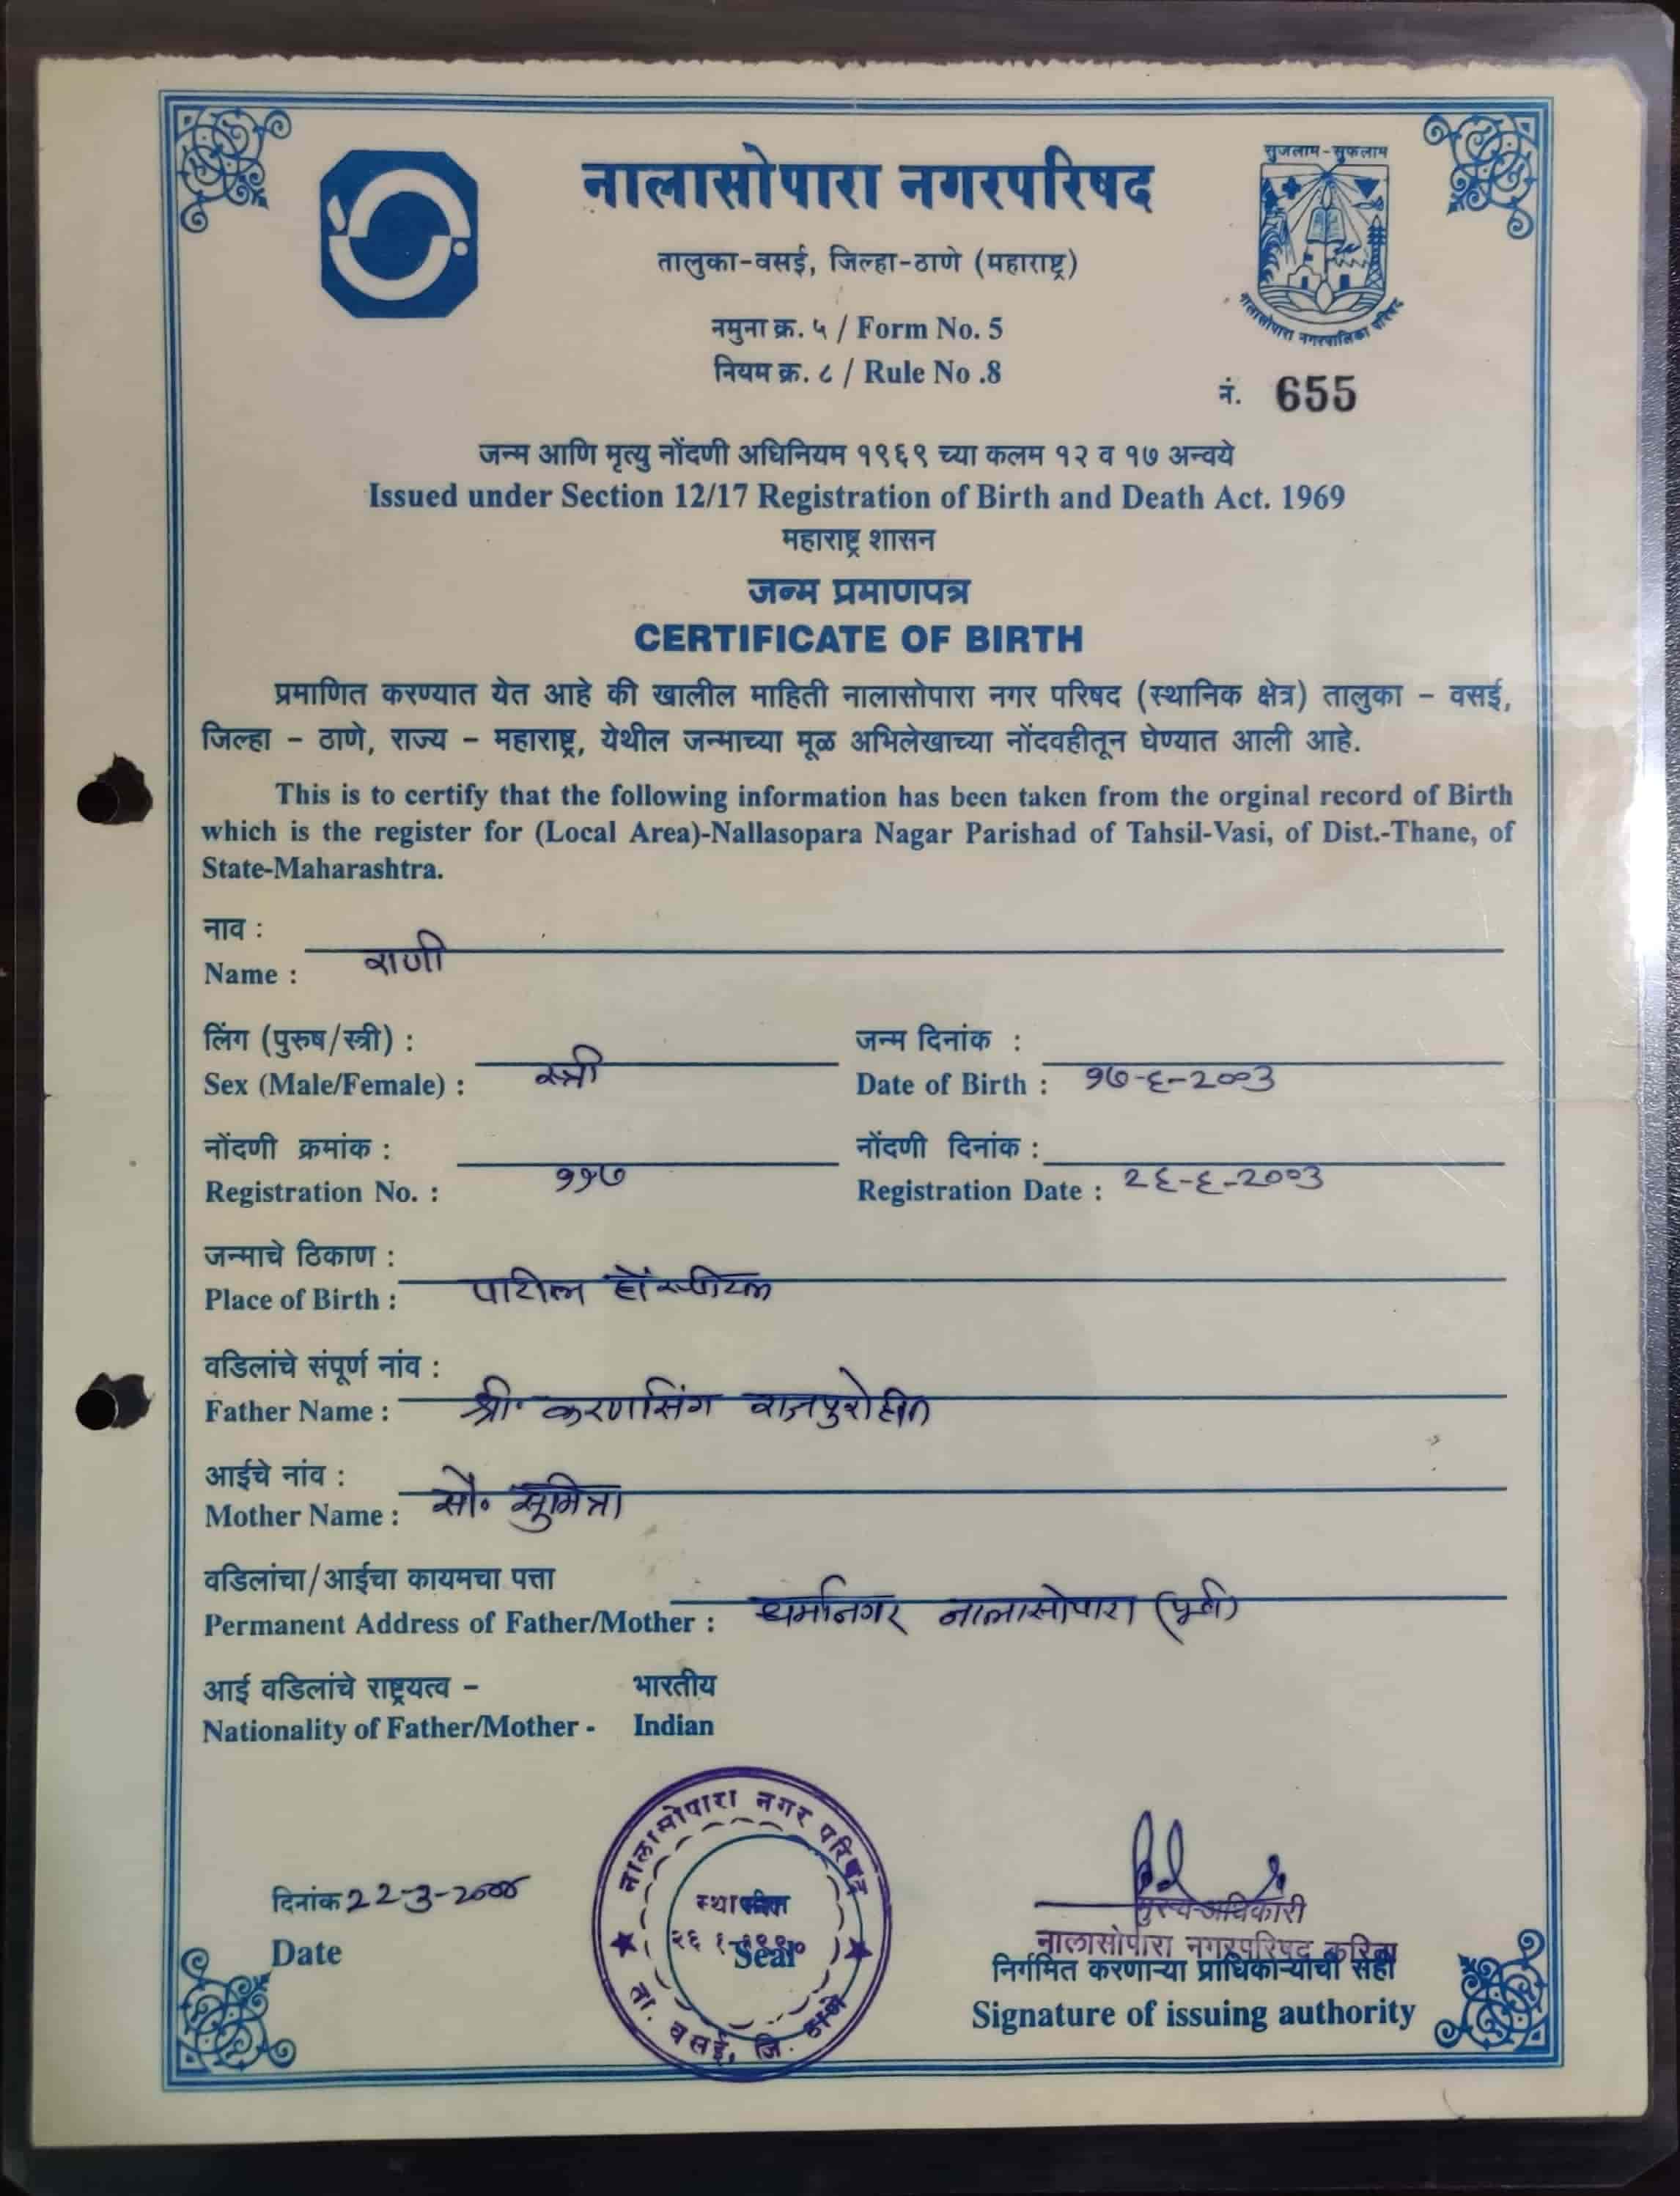 नालासोपारा नगरपरिषद
सुजलाम-सुफलाम
नालासोपारा नगरपालिका परिषद
तालुका-वसई, जिल्हा-ठाणे (महाराष्ट्र)
नमुना क्र. ५ / Form No. 5
नियम क्र. ८ / Rule No .8
नं. 655
जन्म आणि मृत्यु नोंदणी अधिनियम १९६९ च्या कलम १२ व १७ अन्वये
Issued under Section 12/17 Registration of Birth and Death Act. 1969
महाराष्ट्र शासन
जन्म प्रमाणपत्र
CERTIFICATE OF BIRTH
प्रमाणित करण्यात येत आहे की खालील माहिती नालासोपारा नगर परिषद (स्थानिक क्षेत्र) तालुका - वसई,
जिल्हा - ठाणे, राज्य - महाराष्ट्र, येथील जन्माच्या मूळ अभिलेखाच्या नोंदवहीतून घेण्यात आली आहे.
This is to certify that the following information has been taken from the orginal record of Birth
which is the register for (Local Area)-Nallasopara Nagar Parishad of Tahsil-Vasi, of Dist.-Thane, of
State-Maharashtra.
नाव :
Name : राणी
लिंग (पुरुष/स्त्री) : जन्म दिनांक :
Sex (Male/Female) : स्त्री Date of Birth : १७-६-२००३
नोंदणी क्रमांक : नोंदणी दिनांक :
Registration No. : ११७ Registration Date : २६-६-२००३
जन्माचे ठिकाण :
Place of Birth : पाटील हॉस्पीटल
वडिलांचे संपूर्ण नांव :
Father Name : श्री. करणसिंग राजपुरोहीत
आईचे नांव :
Mother Name : सौ. सुमित्रा
वडिलांचा/आईचा कायमचा पत्ता
Permanent Address of Father/Mother : धर्मानगर नालासोपारा (पूर्व)
आई वडिलांचे राष्ट्रयत्व - भारतीय
Nationality of Father/Mother - Indian
नालासोपारा नगर परिषद
दिनांक २२-३-
Date
Seal
ता. वसई, जि. ठाणे
मुख्यअधिकारी
नालासोपारा नगरपरिषद करिता
निर्गमित करणाऱ्या प्राधिकाऱ्याची सही
Signature of issuing authority